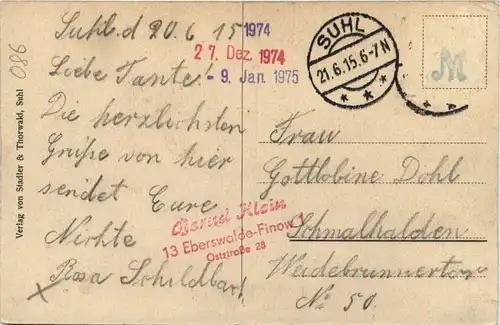 086
Verlag von Stadler & Thorwald, Suhl
Suhl. d 20. 6 15
1974
27. Dez. 1974
- 9. Jan. 1975
Liebe Tante!
Die herzlichsten
Grüße von hier
sendet Eure
Nichte
Rosa Schildbart
Bernd Klein
13 Eberswalde-Finow 1
Oststraße 28
SUHL
21.6.15.6-7N
M
Frau
Gottlobine Dohl
Schmalkalden
Weidebrunnertor
No 50.